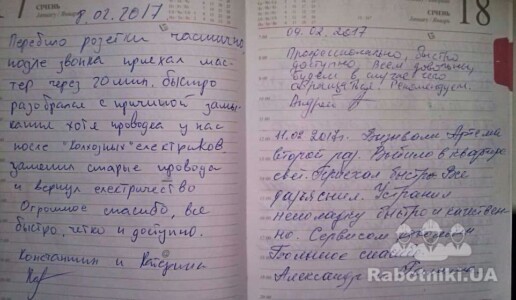 7
СІЧЕНЬ
8.02.2017
Перебило розетки частично
после звонка приехал мас-
тер через 20 мин. быстро
разобрался с причиной замы-
кания хотя проводка у нас
после "колхозных" електриков.
заменил старые провода
и вернул електричество
Огромное спасибо, все
быстро, чётко и доступно.
Константин и Катерина
СІЧЕНЬ
18
09.02.2017
Профессионально, быстро
доступно, всем довольны,
будем в случае чего
обращаться. Рекомендуем.
Андрей
11.02.2017г. Вызывали Артема
второй раз. Выбило в квартире
свет. Приехал быстро. Все
разъяснил. Устранил
неполадку быстро и качествен-
но. Сервисом довольны
Большое спасибо
Александр
Rabotniki.UA